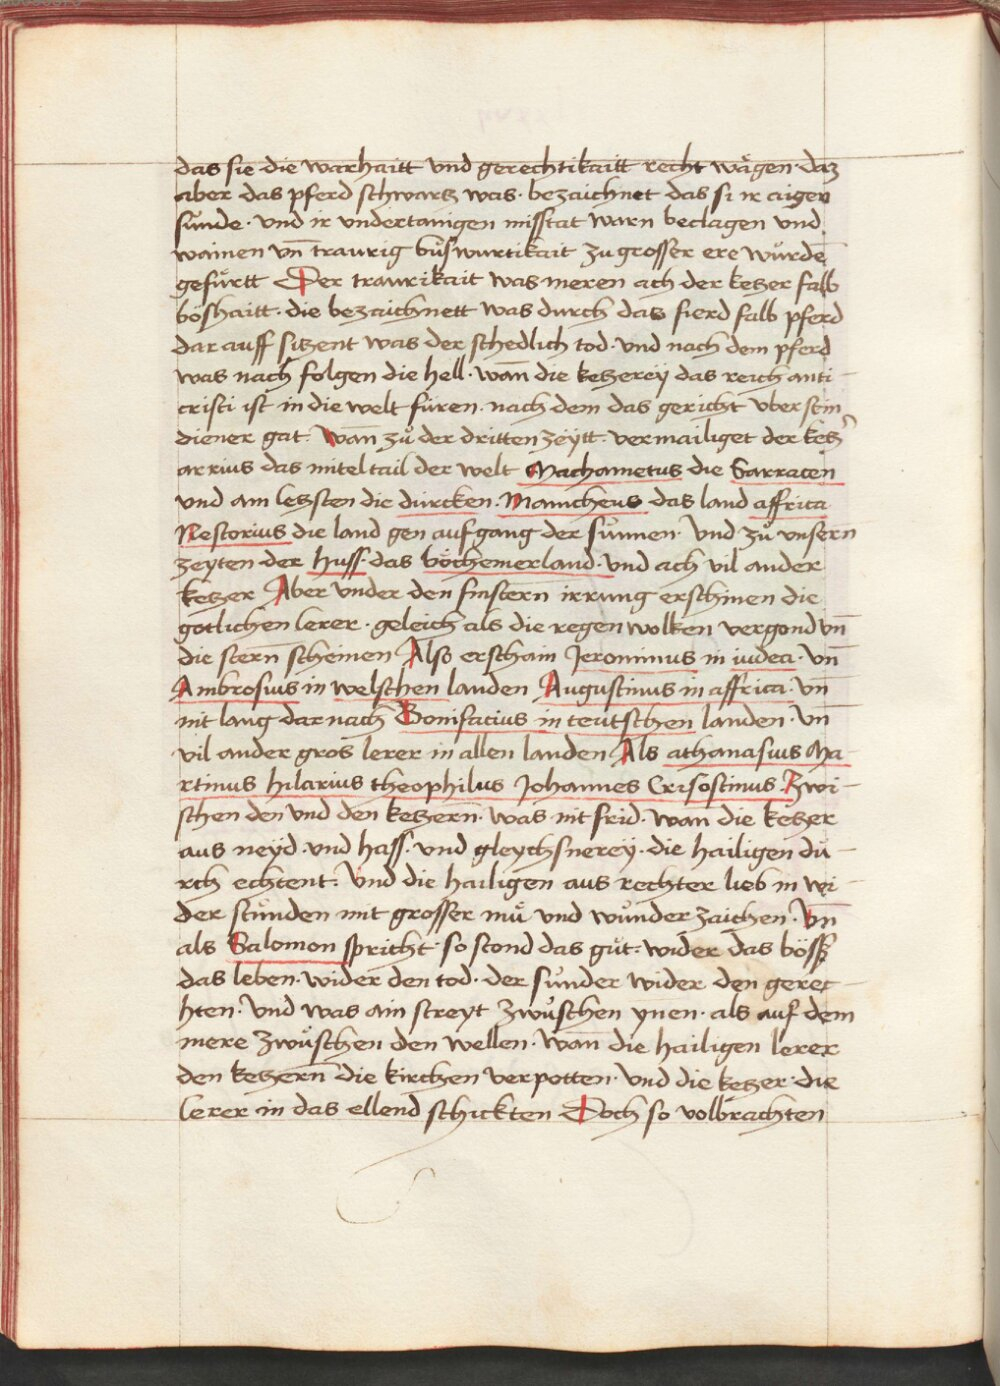 das sie die warhaitt vnd gerechtikaitt recht wägen· daz
aber das pferd schwartz was· bezaichnet das si ir aigen
sünde· vnd ir vndertanigen misstat warn beclagen vnd
wainen vn̄ traurig buͦswurtikait zu grosser ere wurden
gefuͤrtt Der traurikait was meren ach der ketzer falb
böshaitt· die bezaichnett was durch das fierd falb pferd
dar auff sitzent was der schedlich tod· vnd nach dem pferd
was nach folgen die hell· wan̄ die ketzereÿ das reich anti-
cristi ist in die welt füren· nach dem das gericht vber sein
diener gat· Wan̄ zuͦ der dritten zeÿtt· vermailiget der ketz̉
arrius das mitel tail der welt Machametus die Sarracen
vnd am letsten die dürcken· Manicheus das land affrica
Nestorius die land gen aufgang der sünnen· vnd zuͦ vnsern
zeyten der huss· das böchemerland· vnd ach vil ander
ketzer Aber vnder den finstern irrung erschinen die
götlichen lerer· geleich als die regen wolken vergond vn̄
die stern scheinen Also erschain Jeronimus in iudea· vn̄
Ambrosius in welschen landen Augustinus in affrica· vn̄
nit lang dar nach Bonifacius in teutschen landen· vn̄
vil ander gros lerer in allen landen Als athanasius Ma-
rtinus hilarius theophilus Johannes Crisostinus· Zwi-
schen den vnd den ketzern· was nit frid· wan die ketzer
aus neÿd· vnd hass· vnd gleychsnereÿ· die hailigen du-
rch echtent· Vnd die hailigen aus rechter lieb in wi-
der stuͦnden mit grosser muͤ vnd wuͦnder zaichen· Vn̄
als Salomon spricht· so stond das guͦt· wider das böss
das leben· wider den tod· der sünder wider den gerec-
hten· vnd was ain streyt zwüschen ynen· als auf dem
mere zwüschen den wellen· wan̄ die hailigen lerer
den ketzern die kirchen verpotten· vnd die ketzer· die
lerer in das ellend schickten Doch so volbrachten